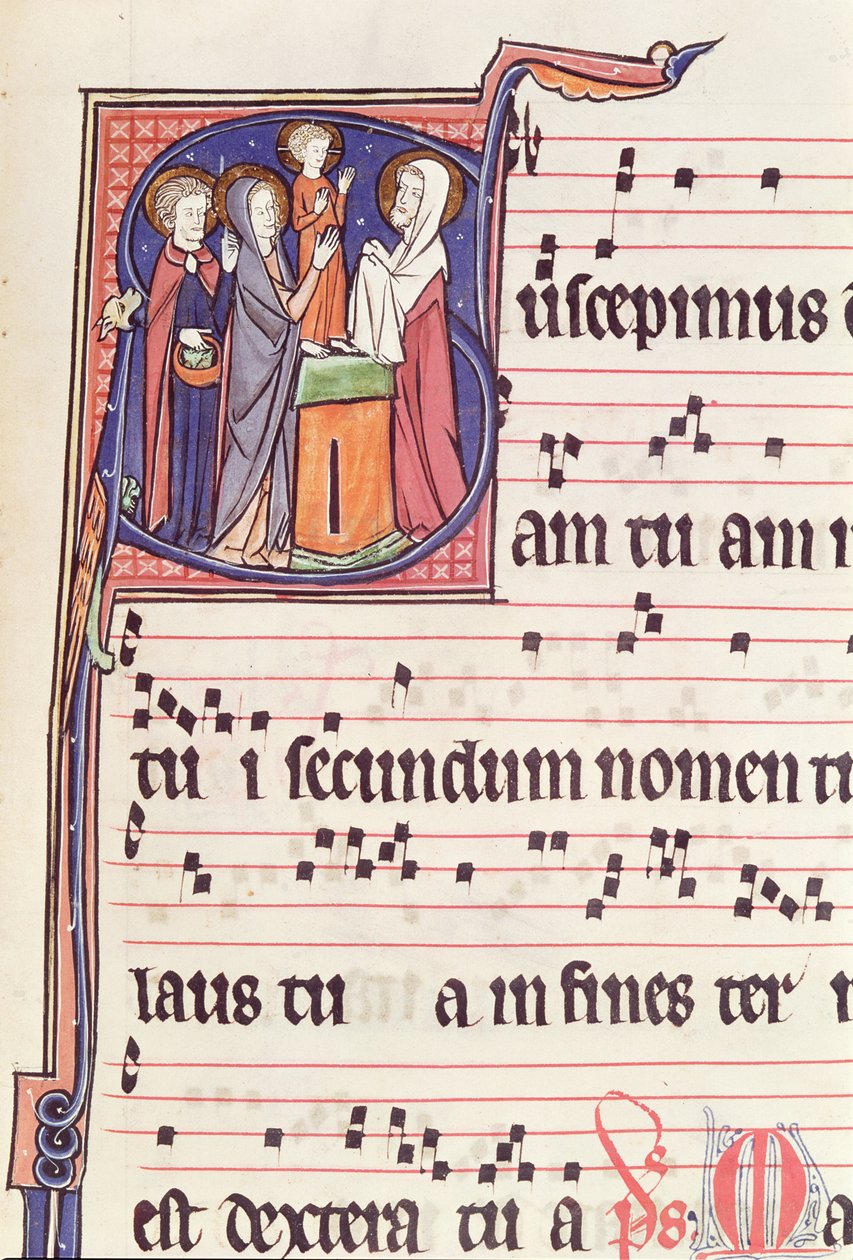 Suscepimus d
am tu am
tu i secundum nomen tu
laus tu a in fines ter r
est dextera tu a ps. Ma